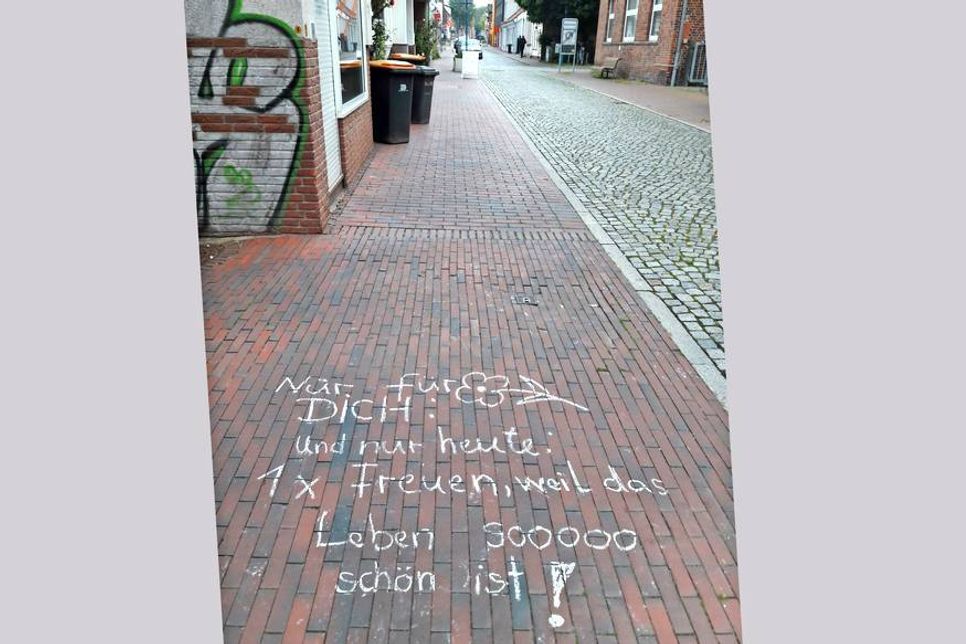 Nur für
DICH:
Und nur heute:
1x Freuen, weil das
Leben sooooo
schön ist!